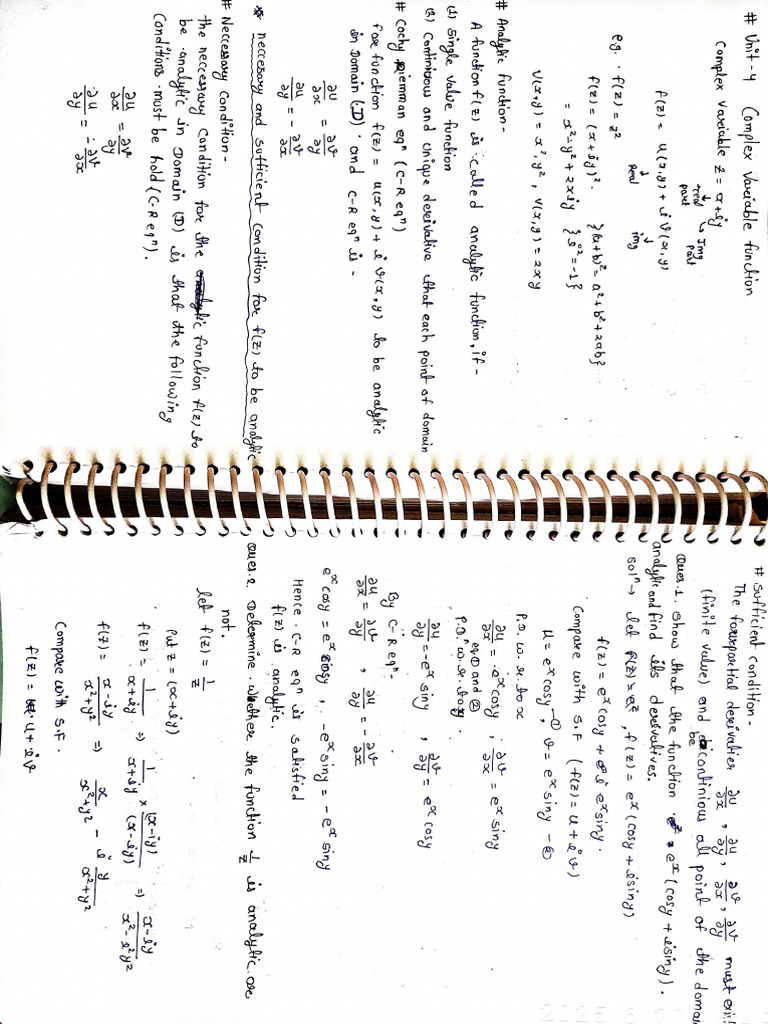 # Unit-4 Complex Variable function
Complex variable z = x+iy
real part
Img part
f(z) = u(x,y) + i v(x,y)
real
img
eg. f(z) = z²
f(z) = (x+iy)². {(a+b)² = a²+b²+2ab}
= x²-y²+2xiy {i²=-1}
U(x,y) = x²,y² , V(x,y) = 2xy
# Analytic function-
A function f(z) is called analytic function, if -
(1) single value function
(2) Continuous and unique derivative that each point of domain
# Cochy Riemman eqⁿ (C-R eqⁿ)
for function f(z) = u(x,y) + i v(x,y) to be analytic
in Domain (D) and C-R eqⁿ is -
∂u/∂x = ∂v/∂y
∂u/∂y = -∂v/∂x
* neccesary and sufficient condition for f(z) to be analytic
# Neccesary Condition -
the neccesary Condition for the function f(z) to
be analytic in Domain (D) is that the following
Conditions must be hold (C-R eqⁿ).
∂u/∂x = ∂v/∂y
∂u/∂y = -∂v/∂x
# sufficient condition-
The partial derivatier ∂u/∂x , ∂u/∂y , ∂v/∂x , ∂v/∂y must exi
(finite value) and be continious all point of the domai
Ques.1. Show that the function eˣ(cosy + isiny).
analytic and find its derivatives.
solⁿ→ let f(z) = eᶻ , f(z) = eˣ(cosy + isiny)
f(z) = eˣcosy + i eˣsiny.
Compare with S.F (f(z) = u+iv)
U = eˣcosy -① , v = eˣsiny -②
P.D. w.r. to x
∂u/∂x = eˣcosy , ∂v/∂x = eˣsiny
eq① and ②
P.D. w.r. to y.
∂u/∂y = -eˣsiny , ∂v/∂y = eˣcosy
By C-R eqⁿ.
∂u/∂x = ∂v/∂y , ∂u/∂y = -∂v/∂x
eˣcosy = eˣcosy , -eˣsiny = -eˣsiny
Hence C-R eqⁿ is satisfied
f(z) is analytic.
Ques.2. Determine whether the function 1/z is analytic or
not.
let f(z) = 1/z
Put z = (x+iy)
f(z) = 1/(x+iy) ⇒ 1/(x+iy) × (x-iy)/(x-iy) ⇒ (x-iy)/(x²-i²y²)
f(z) = (x-iy)/(x²+y²) ⇒ x/(x²+y²) - i y/(x²+y²)
Compare with S.F.
f(z) = u+iv